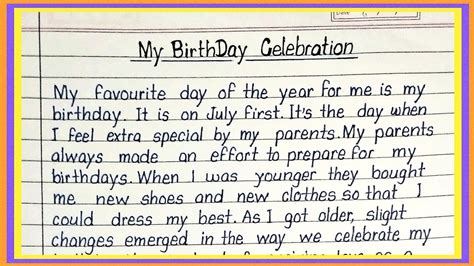 My BirthDay Celebration
My favourite day of the year for me is my
birthday. It is on July first. It's the day when
I feel extra special by my parents. My parents
always made an effort to prepare for my
birthdays. When I was younger they bought
me new shoes and new clothes so that I
could dress my best. As I got older, slight
changes emerged in the way we celebrate my